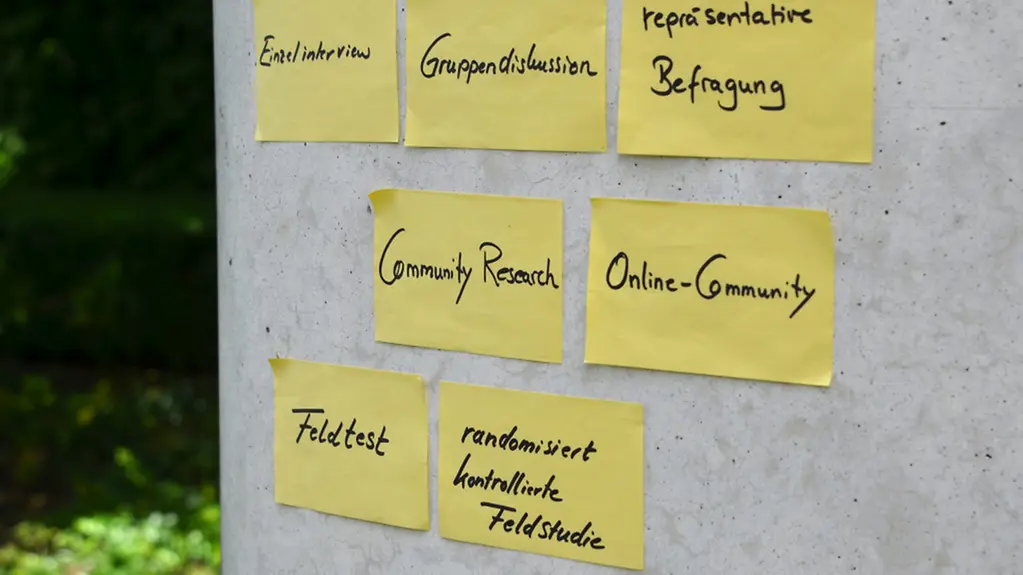 Einzelinterview
Gruppendiskussion
repräsentative
Befragung
Community Research
Online-Community
Feldtest
randomisiert
kontrollierte
Feldstudie